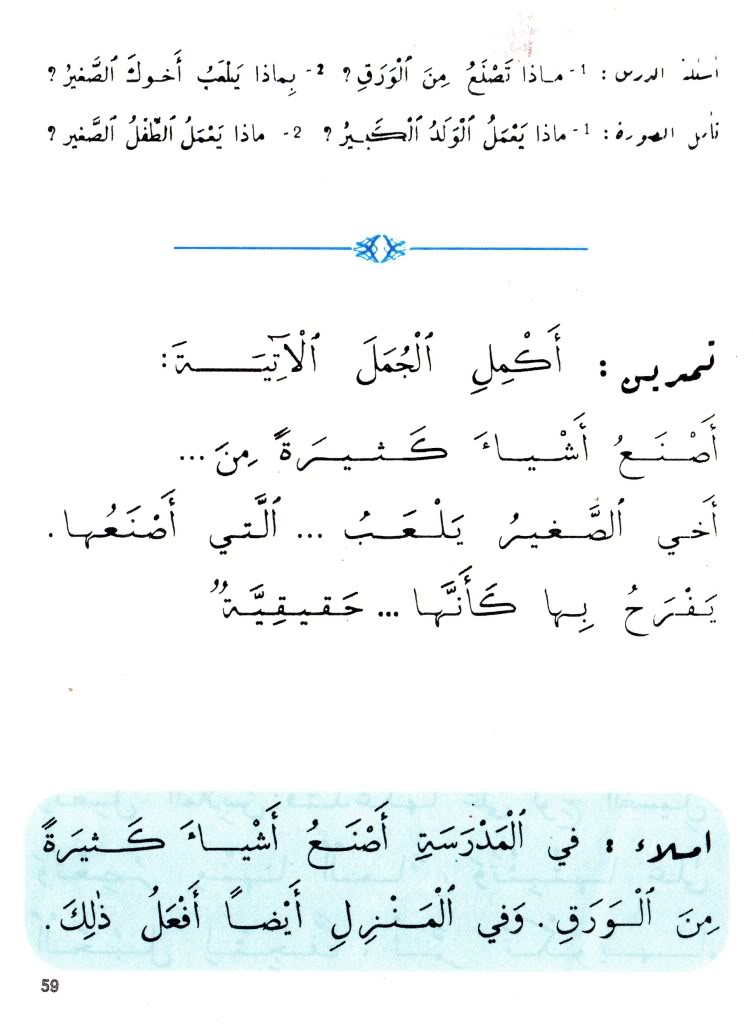 أسئلة الدرس : 1- ماذا تَصْنَعُ مِنَ ٱلْوَرَقِ ؟ 2- بِماذا يَلْعَبُ أَخوكَ ٱلصَّغيرُ ؟
تأمل الصورة : 1- ماذا يَعْمَلُ ٱلْوَلَدُ ٱلْكَبيرُ ؟ 2- ماذا يَعْمَلُ ٱلطِّفْلُ ٱلصَّغير ؟
تمرين : أَكْمِلِ ٱلْجُمَلَ ٱلْآتِيَةَ :
أَصْنَعُ أَشْياءَ كَثيرَةً مِنَ ...
أَخي ٱلصَّغيرُ يَلْعَبُ ... ٱلَّتي أَصْنَعُها .
يَفْرَحُ بِها كَأَنَّها ... حَقيقِيَّةٌ
املاء : في ٱلْمَدْرَسَةِ أَصْنَعُ أَشْياءَ كَثيرَةً
مِنَ ٱلْوَرَقِ . وَفي ٱلْمَنْزِلِ أَيْضاً أَفْعَلُ ذٰلِكَ .
59